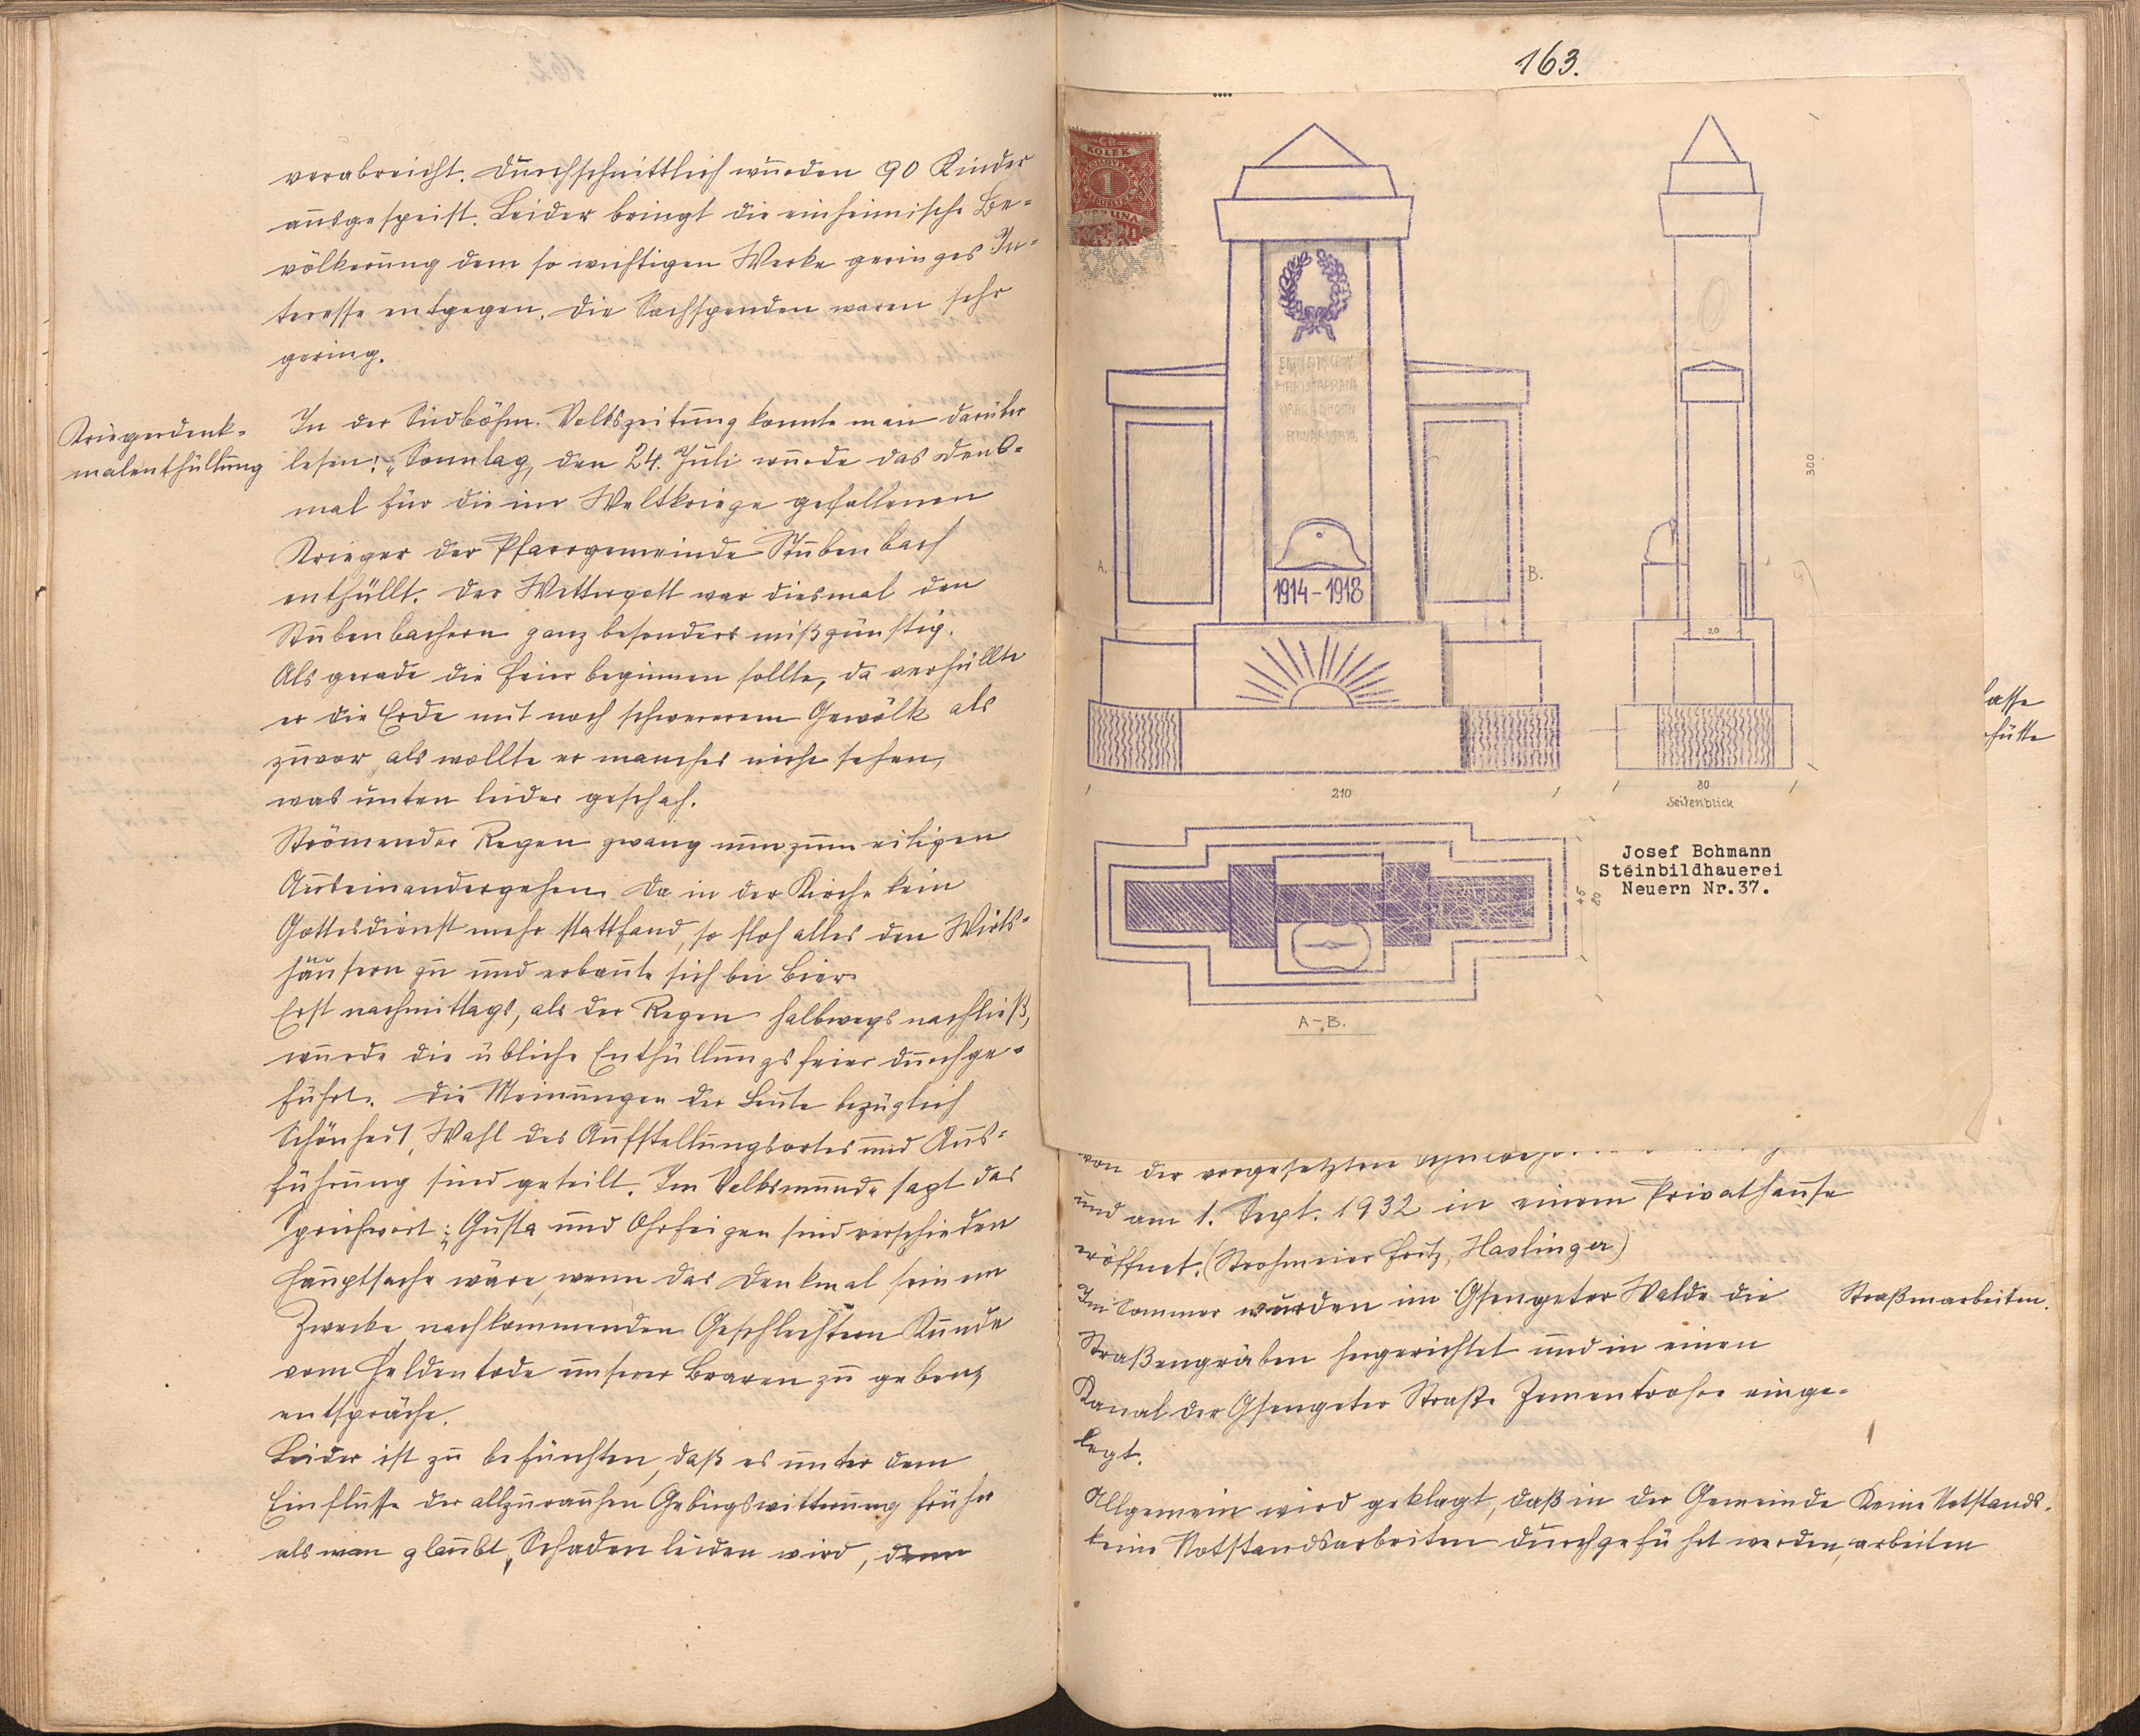 verabreicht. Durchschnittlich wurden 90 Kinder
ausgespeist. Leider bringt die einheimische Be-
völkerung dem so wichtigen Werke geringes In-
teresse entgegen. Die Sachspenden waren sehr
gering.
Kriegerdenk-
malenthüllung
In der Südböhm. Volkszeitung konnte man darüber
lesen: „Sonntag, den 24. Juli wurde das Denk-
mal für die im Weltkriege gefallenen
Krieger der Pfarrgemeinde Stubenbach
enthüllt. Der Wettergott war diesmal den
Stubenbachern ganz besonders mißgünstig.
Als gerade die Feier beginnen sollte, da verhüllte
er die Erde mit noch schwererem Gewölk als
zuvor, als wollte er manches nicht sehen,
was unten leider geschah.
Strömender Regen zwang nun zum eiligen
Auseinandergehen. Da in der Kirche kein
Gottesdienst mehr stattfand, so floh alles den Wirts-
häusern zu und erbaute sich bei Bier.
Erst nachmittags, als der Regen halbwegs nachließ,
wurde die übliche Enthüllungsfeier durchge-
führt. Die Meinungen der Leute bezüglich
Schönheit, Wahl des Aufstellungsortes und Aus-
führung sind geteilt. Im Volksmunde sagt das
Sprichwort: „Gusta und Ohrfeigen sind verschieden
Hauptsache wäre, wenn das Denkmal seinem
Zwecke, nachkommenden Geschlechtern Kunde
vom Heldentode unserer Braven zu geben,
entspräche.
Leider ist zu befürchten, daß es unter dem
Einflusse der allzurauhen Gebirgswitterung früher
als man glaubt, Schaden leiden wird, denn
163.
KOLEK
1
1914-1918
A.
B.
300
20
210
80
Seitenblick
Josef Bohmann
Steinbildhauerei
Neuern Nr.37.
45
80
A-B.
asse
hütte
von der vorgesetzten
und am 1. Sept. 1932 in einem Privathause
eröffnet. (Strohmeier Fritz, Haslinger)
Im Sommer wurden im Gsengeter Walde die
Straßenarbeiten.
Straßengräben hergerichtet und in einen
Kanal der Gsengeter Straße Zementrohre einge-
legt.
Allgemein wird geklagt, daß in der Gemeinde
Keine Notstands-
keine Notstandsarbeiten durchgeführt werden,
arbeiten